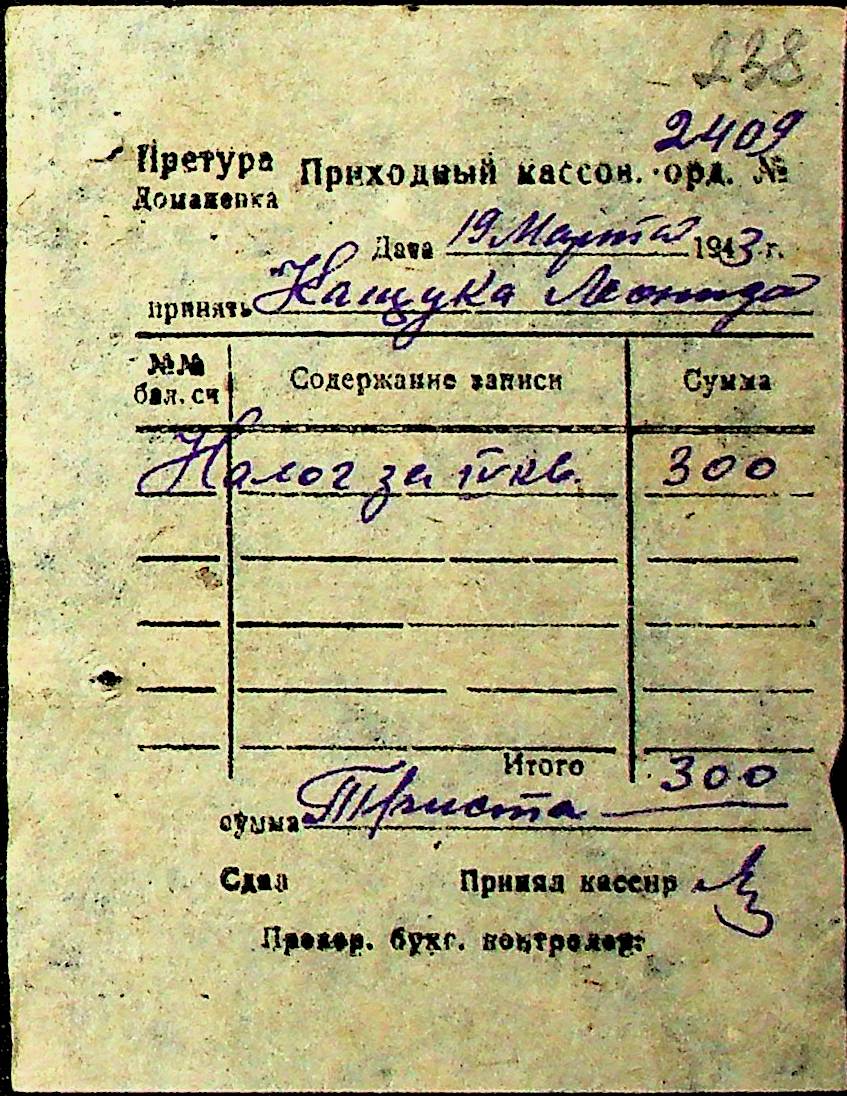 238
2409
Претура Приходный кассов. орд. №
Доманевка
Дата 19 Марта 1943 г.
принять Кащука Леонида
№№ бал. сч Содержание записи Сумма
Налог за IV кв. 300
Итого 300
сумма Триста
Сдал Принял кассир
Провер. бухг. контролер: